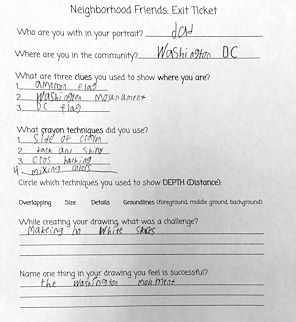 Neighborhood Friends: Exit Ticket
Who are you with in your portrait? dad
Where are you in the community? Washington DC
What are three clues you used to show where you are?
1. ameron flag
2. Washington mounument
3. DC flag
What crayon techniques did you use?
1. Side of crayon
2. dark and shiny
3. cros haching
4. mixing colers
Circle which techniques you used to show DEPTH (Distance):
Overlapping Size Details Groundlines (foreground, middle ground, background)
While creating your drawing, what was a challenge?
Makeing no White
Name one thing in your drawing you feel is successful?
the Washington monment